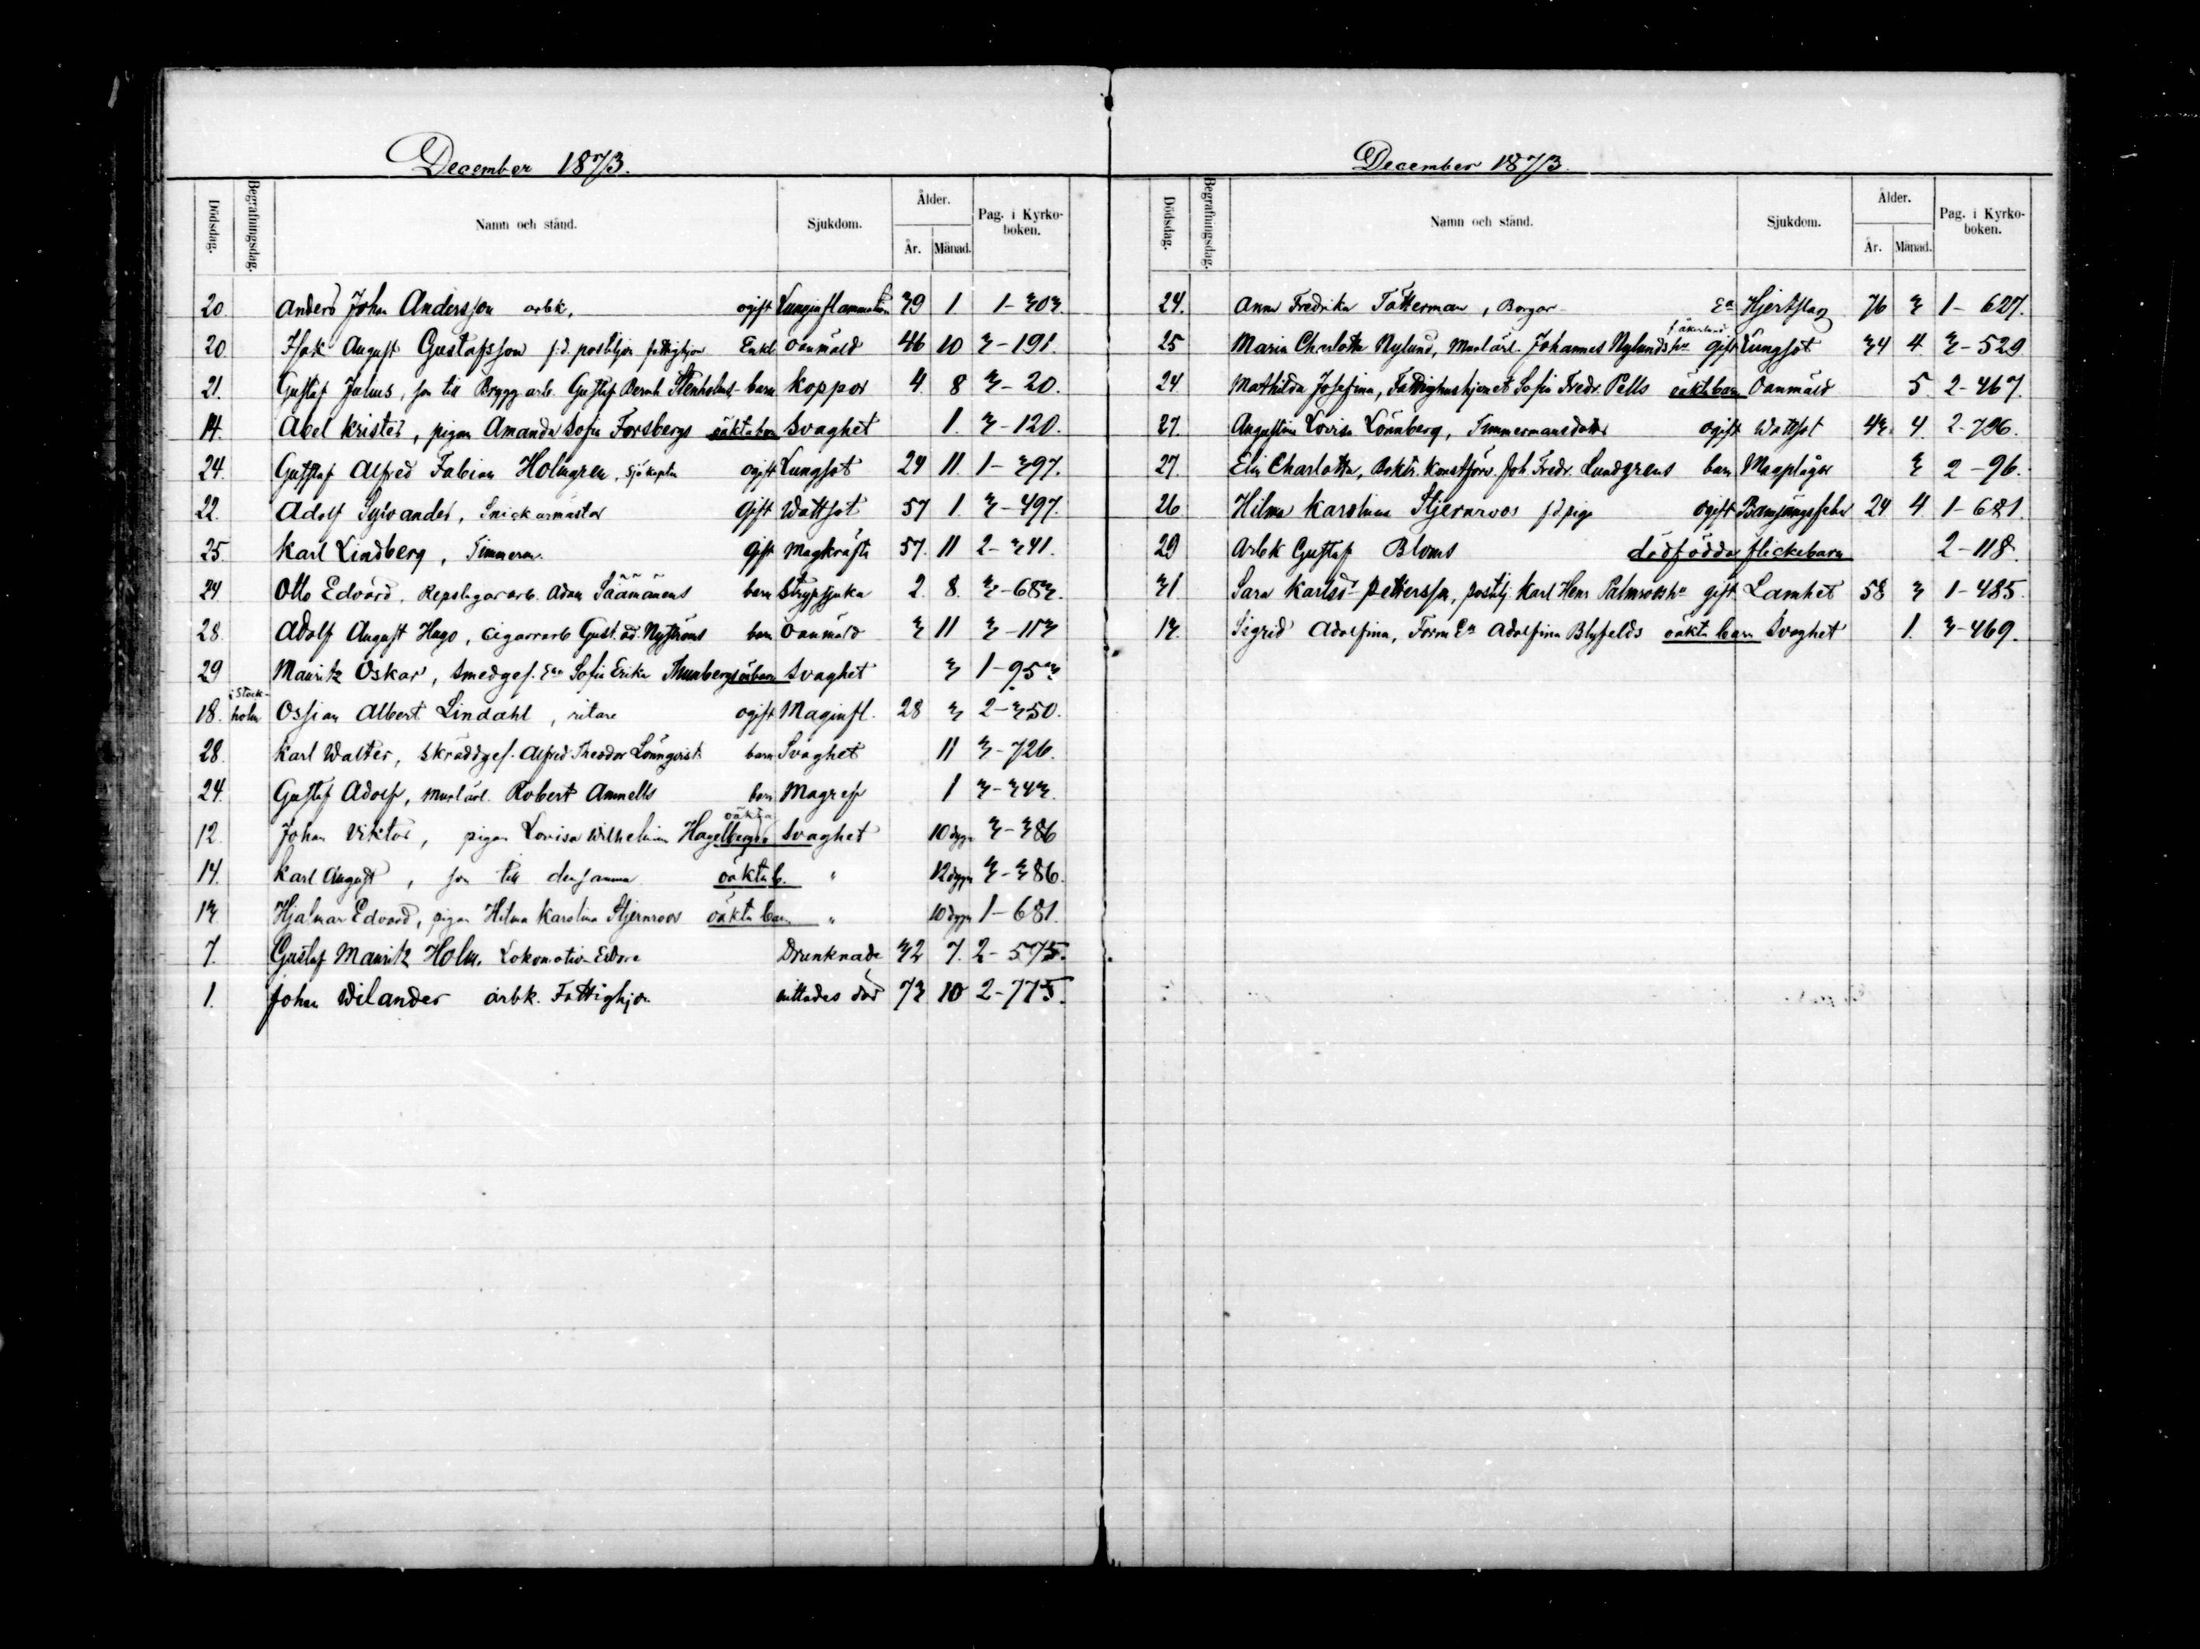 December 1873.
Dödsdag. Begrafningsdag. Namn och stånd. Sjukdom. Ålder. År. Månad. Pag. i Kyrkoboken.
20. Anders Johan Andersson arbk. ogift Lunginflammation 39 1 1-303.
20. Isak August Gustafsson f.d. postiljon fattighjon Enkl. oanmäld 46 10 3-191.
21. Gustaf Julius, son till Brygg arb. Gustaf Bernh. Stenholms barn Koppor 4 8 3-20.
14. Abel Krister, pigan Amanda Sofia Forsbergs oäkta barn Svaghet 1. 3-120.
24. Gustaf Alfred Fabian Holmgren, Sjökapten ogift Lungsot 29 11. 1-397.
22. Adolf Sylvander, Snickarmäster Gift Wattsot 57 1. 3-497.
25. Karl Lindberg, Timmerm. Gift Magkräfta 57. 11 2-341.
24 Otto Edvard, Repslagararb. Adam Säämänens barn Strypsjuka 2. 8. 3-683.
28. Adolf August Hugo, Cigarrarb. Gust. Ad. Nyströms barn oanmäld 3 11 3-113
29 Mauritz Oskar, Smedges. Sofia Erika Thunbergs barn Svaghet 3 1-953
18. i Stockholm Ossian Albert Lindahl, ritare ogift Maginfl. 28 3 2-350.
28. Karl Walter, Skräddges. Alfred Theodor Lönnqvist barn Svaghet 11 3-726.
24. Gustaf Adolf, Murlärl. Robert Ammells barn Magref 1 3-343.
12. Johan Viktor, pigan Lovisa Wilhelmina Hagelbergs oäkta Svaghet 10 dygn 3-386
14. Karl August, son till densamma oäkta b. " 12 dygn 3-386.
13 Hjalmar Edvard, pigan Hilma Karolina Stjernroos oäkta barn " 10 dygn 1-681.
7. Gustaf Mauritz Holm. Lokomotiv Eldare Drunknade 32 7. 2-575.
1. Johan Wilander arbk. Fattighjon hittades död 73 10 2-775.
December 1873.
Dödsdag. Begrafningsdag. Namn och stånd. Sjukdom. Ålder. År. Månad. Pag. i Kyrkoboken.
24. Anna Fredrika Tätterman, Borgar Ea Hjertslag 76 3 1-627.
25 Maria Charlotta Nylund, Murlärl. Johannes Nylunds hu gift Lungsot 34 4. 3-529
24. Mathilda Josefina, Fattighushjonet Sofia Fredr. Pells oäkta barn Oanmäld 5. 2-467.
27. Augustina Lovisa Lönnberg, Timmermansdotter ogift Wattsot 43. 4. 2-796.
27. Elin Charlotta, Joh. Fredr. Lundgrens barn Magplågor 3 2-96.
26. Hilma Karolina Stjernroos f.d. piga ogift Barnsängsfeber 24 4. 1-681.
29 Arbk Gustaf Bloms dödfödda flickebarn 2-118.
31. Sara Karlsd. Pettersson, postilj. Karl Henr. Palmroos hu gift Lamhet 58 3 1-485.
13. Sigrid Adolfina, Form Ea Adolfina Blyfelds oäkta barn Svaghet 1. 3-469.